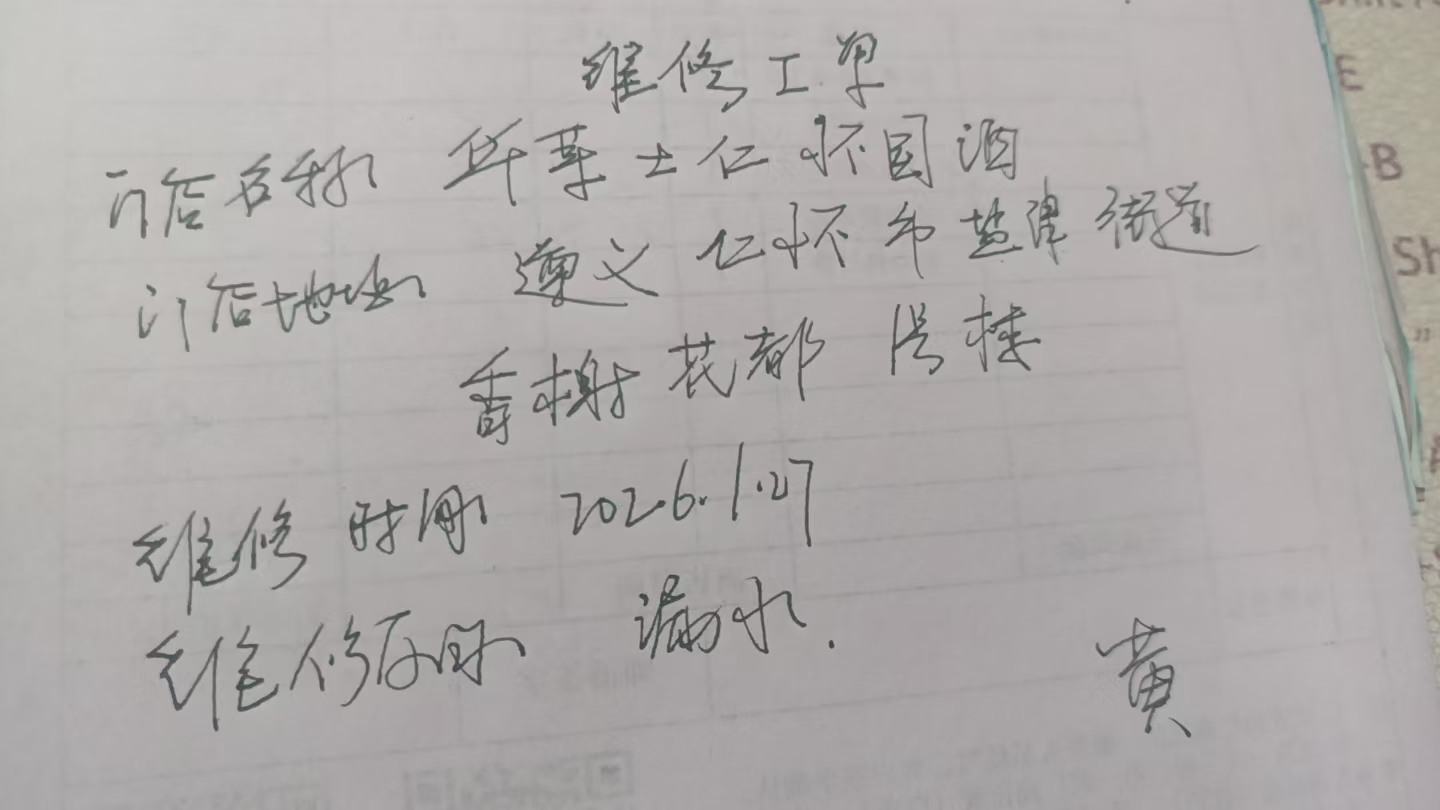 维修工单
门店名称 华莱士仁怀国酒
门店地址 遵义仁怀市盐津街道
香榭花都 号楼
维修时间 2026.1.27
维修原因 漏水.
黄
E
-B
Sh
"